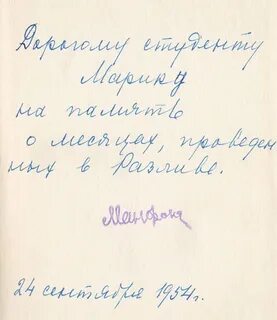 Дорогому студенту
Марику
на память
о месяцах, проведен
ных в Разливе.
24 сентября 1954 г.